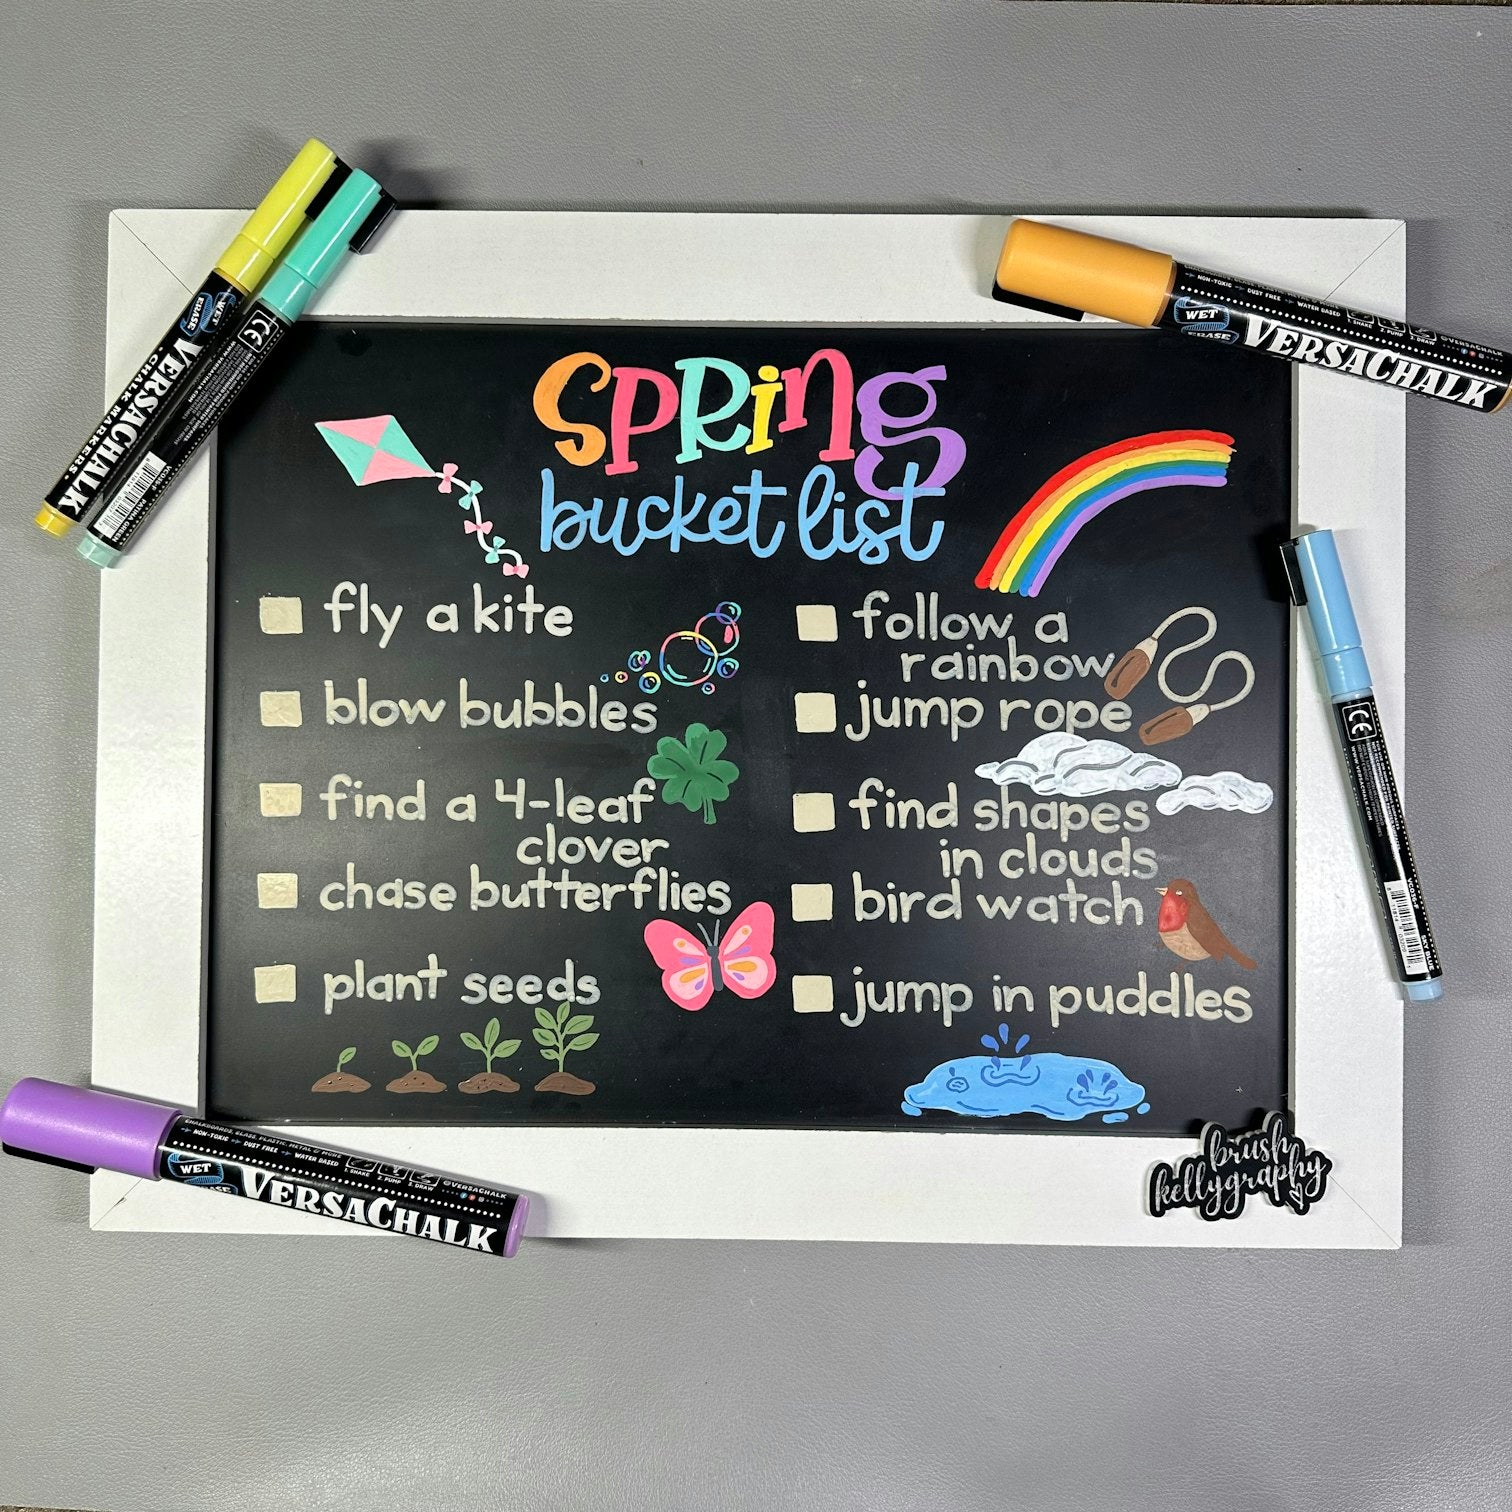 SPRing
bucket list
fly a kite
blow bubbles
find a 4-leaf
clover
chase butterflies
plant seeds
follow a
rainbow
jump rope
find shapes
in clouds
bird watch
jump in puddles
WET
ERASE
VERSACHALK
CHALK MARKERS
CE
NON-TOXIC DUST FREE WATER BASED
1. SHAKE 2. PUMP 3. DRAW
@VERSACHALK
WET
ERASE
VERSACHALK
CE
CHALKBOARDS, GLASS, PLASTIC, METAL & MORE
NON-TOXIC DUST FREE WATER BASED
1. SHAKE 2. PUMP 3. DRAW
@VERSACHALK
WET
VERSACHALK
brush
kellygraphy